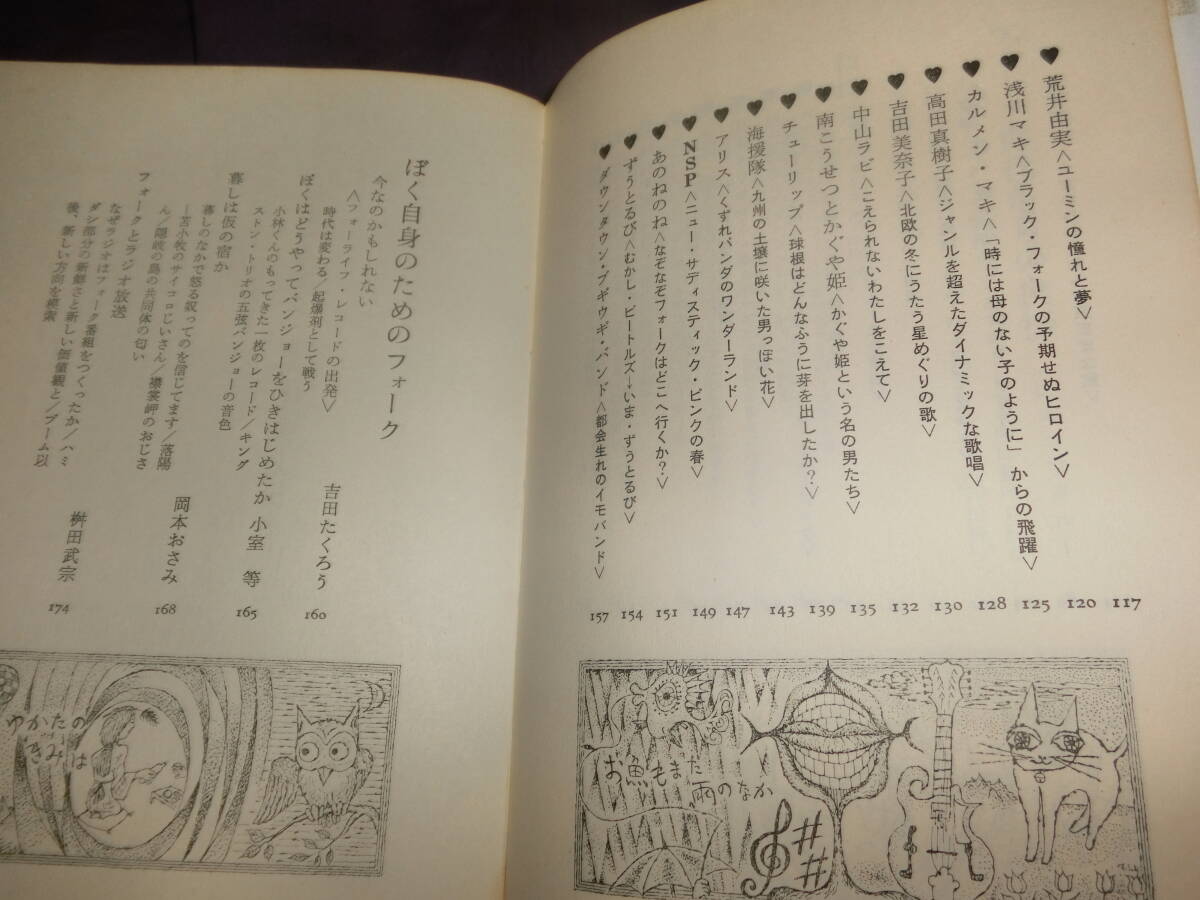 ♥荒井由実<ユーミンの憧れと夢> 117
♥浅川マキ<ブラック・フォークの予期せぬヒロイン> 120
♥カルメン・マキ<「時には母のない子のように」からの飛躍> 125
♥高田真樹子<ジャンルを超えたダイナミックな歌唱> 128
♥吉田美奈子<北欧の冬にうたう星めぐりの歌> 130
♥中山ラビ<こえられないわたしをこえて> 132
♥南こうせつとかぐや姫<かぐや姫という名の男たち> 135
♥チューリップ<球根はどんなふうに芽を出したか?> 139
♥海援隊<九州の土壌に咲いた男っぽい花> 143
♥アリス<くずれパンダのワンダーランド> 147
♥NSP<ニュー・サディスティック・ピンクの春> 149
♥あのねのね<なぞなぞフォークはどこへ行くか?> 151
♥ずうとるび<むかし・ビートルズ→いま・ずうとるび> 154
♥ダウンタウン・ブギウギ・バンド<都会生れのイモバンド> 157
お魚もまた
雨のなか
ぼく自身のためのフォーク
今なのかもしれない 吉田たくろう 160
<フォーライフ・レコードの出発>
時代は変わる/起爆剤として戦う
ぼくはどうやってバンジョーをひきはじめたか 小室 等 165
小林くんのもってきた一枚のレコード/キング
ストン・トリオの五弦バンジョーの音色
暮しは仮の宿か 岡本おさみ 168
暮しのなかで怒る奴ってのを信じてます/落陽
―苫小牧のサイコロじいさん/襟裳岬のおじさ
ん/隠岐の島の共同体の匂い
フォークとラジオ放送 桝田武宗 174
なぜラジオはフォーク番組をつくったか/ハミ
ダシ部分の新鮮さと新しい価値観と/ブーム以
後、新しい方向を模索
ゆかたの
きみは